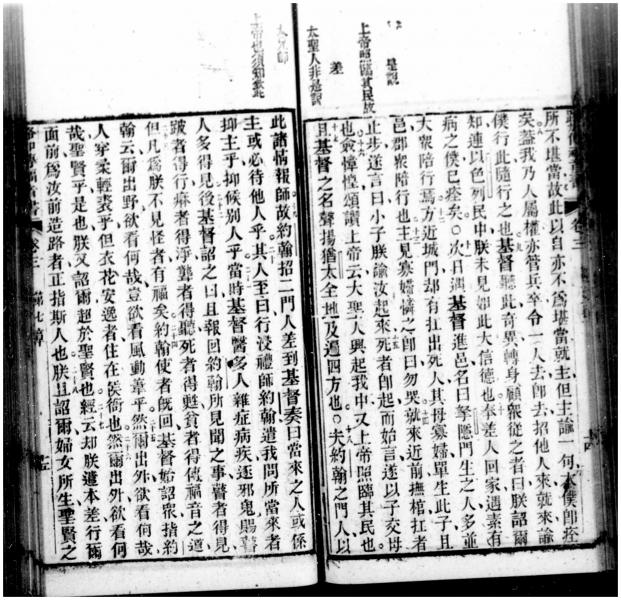 是誤
上帝照臨其民故
差
太聖人非是誤
卷三
所不堪當故此以自亦不爲堪當就主但主諭一句本僕即痊
矣蓋我乃人屬權亦管兵卒令一人去即去招他人來就來諭
僕行此隨行之也基督聽此奇異轉身顧衆從之者曰朕詔爾
知連以色列民中朕未見如此大信德也奉差人回家遇素有
病之僕已痊矣○次日遇基督進邑名曰拏隱門生之人多並
大衆陪行焉方近城門却有扛出死人其母寡婦單生此子且
邑郡衆陪行也主見寡婦憐之即曰勿哭就來近前撫棺扛者
止步遂言曰小子朕諭汝起來死者即起而始言遂以子交母
也衆惶惶頌讚上帝云大聖人興起我中又上帝照臨其民也
且基督之名聲揚猶太全地及遍四方也○夫約翰之門人以
大兄師
上帝也須知
此諸情報師故約翰招二門人差到基督奏曰當來之人或係
主或必待他人乎其人至曰行浸禮師約翰遣我問所當來者
抑主乎抑候別人乎當時基督醫多人雜症病疾逐邪鬼賜瞽
人多得見後基督詔之曰且報回約翰所見聞之事瞽者得見
跛者得行痳者得淨聾者得聽死者得甦貧者得傳福音之道
但凡爲朕不見怪者有福矣約翰使者既回基督始詔衆指約
翰云爾出野欲看何哉豈欲看風動葦乎然爾出外欲看何哉
人穿柔輕裘乎但衣花安逸者住在侯衙也然爾出外欲看何
哉聖賢乎是也朕又詔爾超於聖賢也經云却朕遣本差行爾
面前爲汝前造路者正指斯人也朕且詔爾婦女所生聖賢之
卷三 第七章